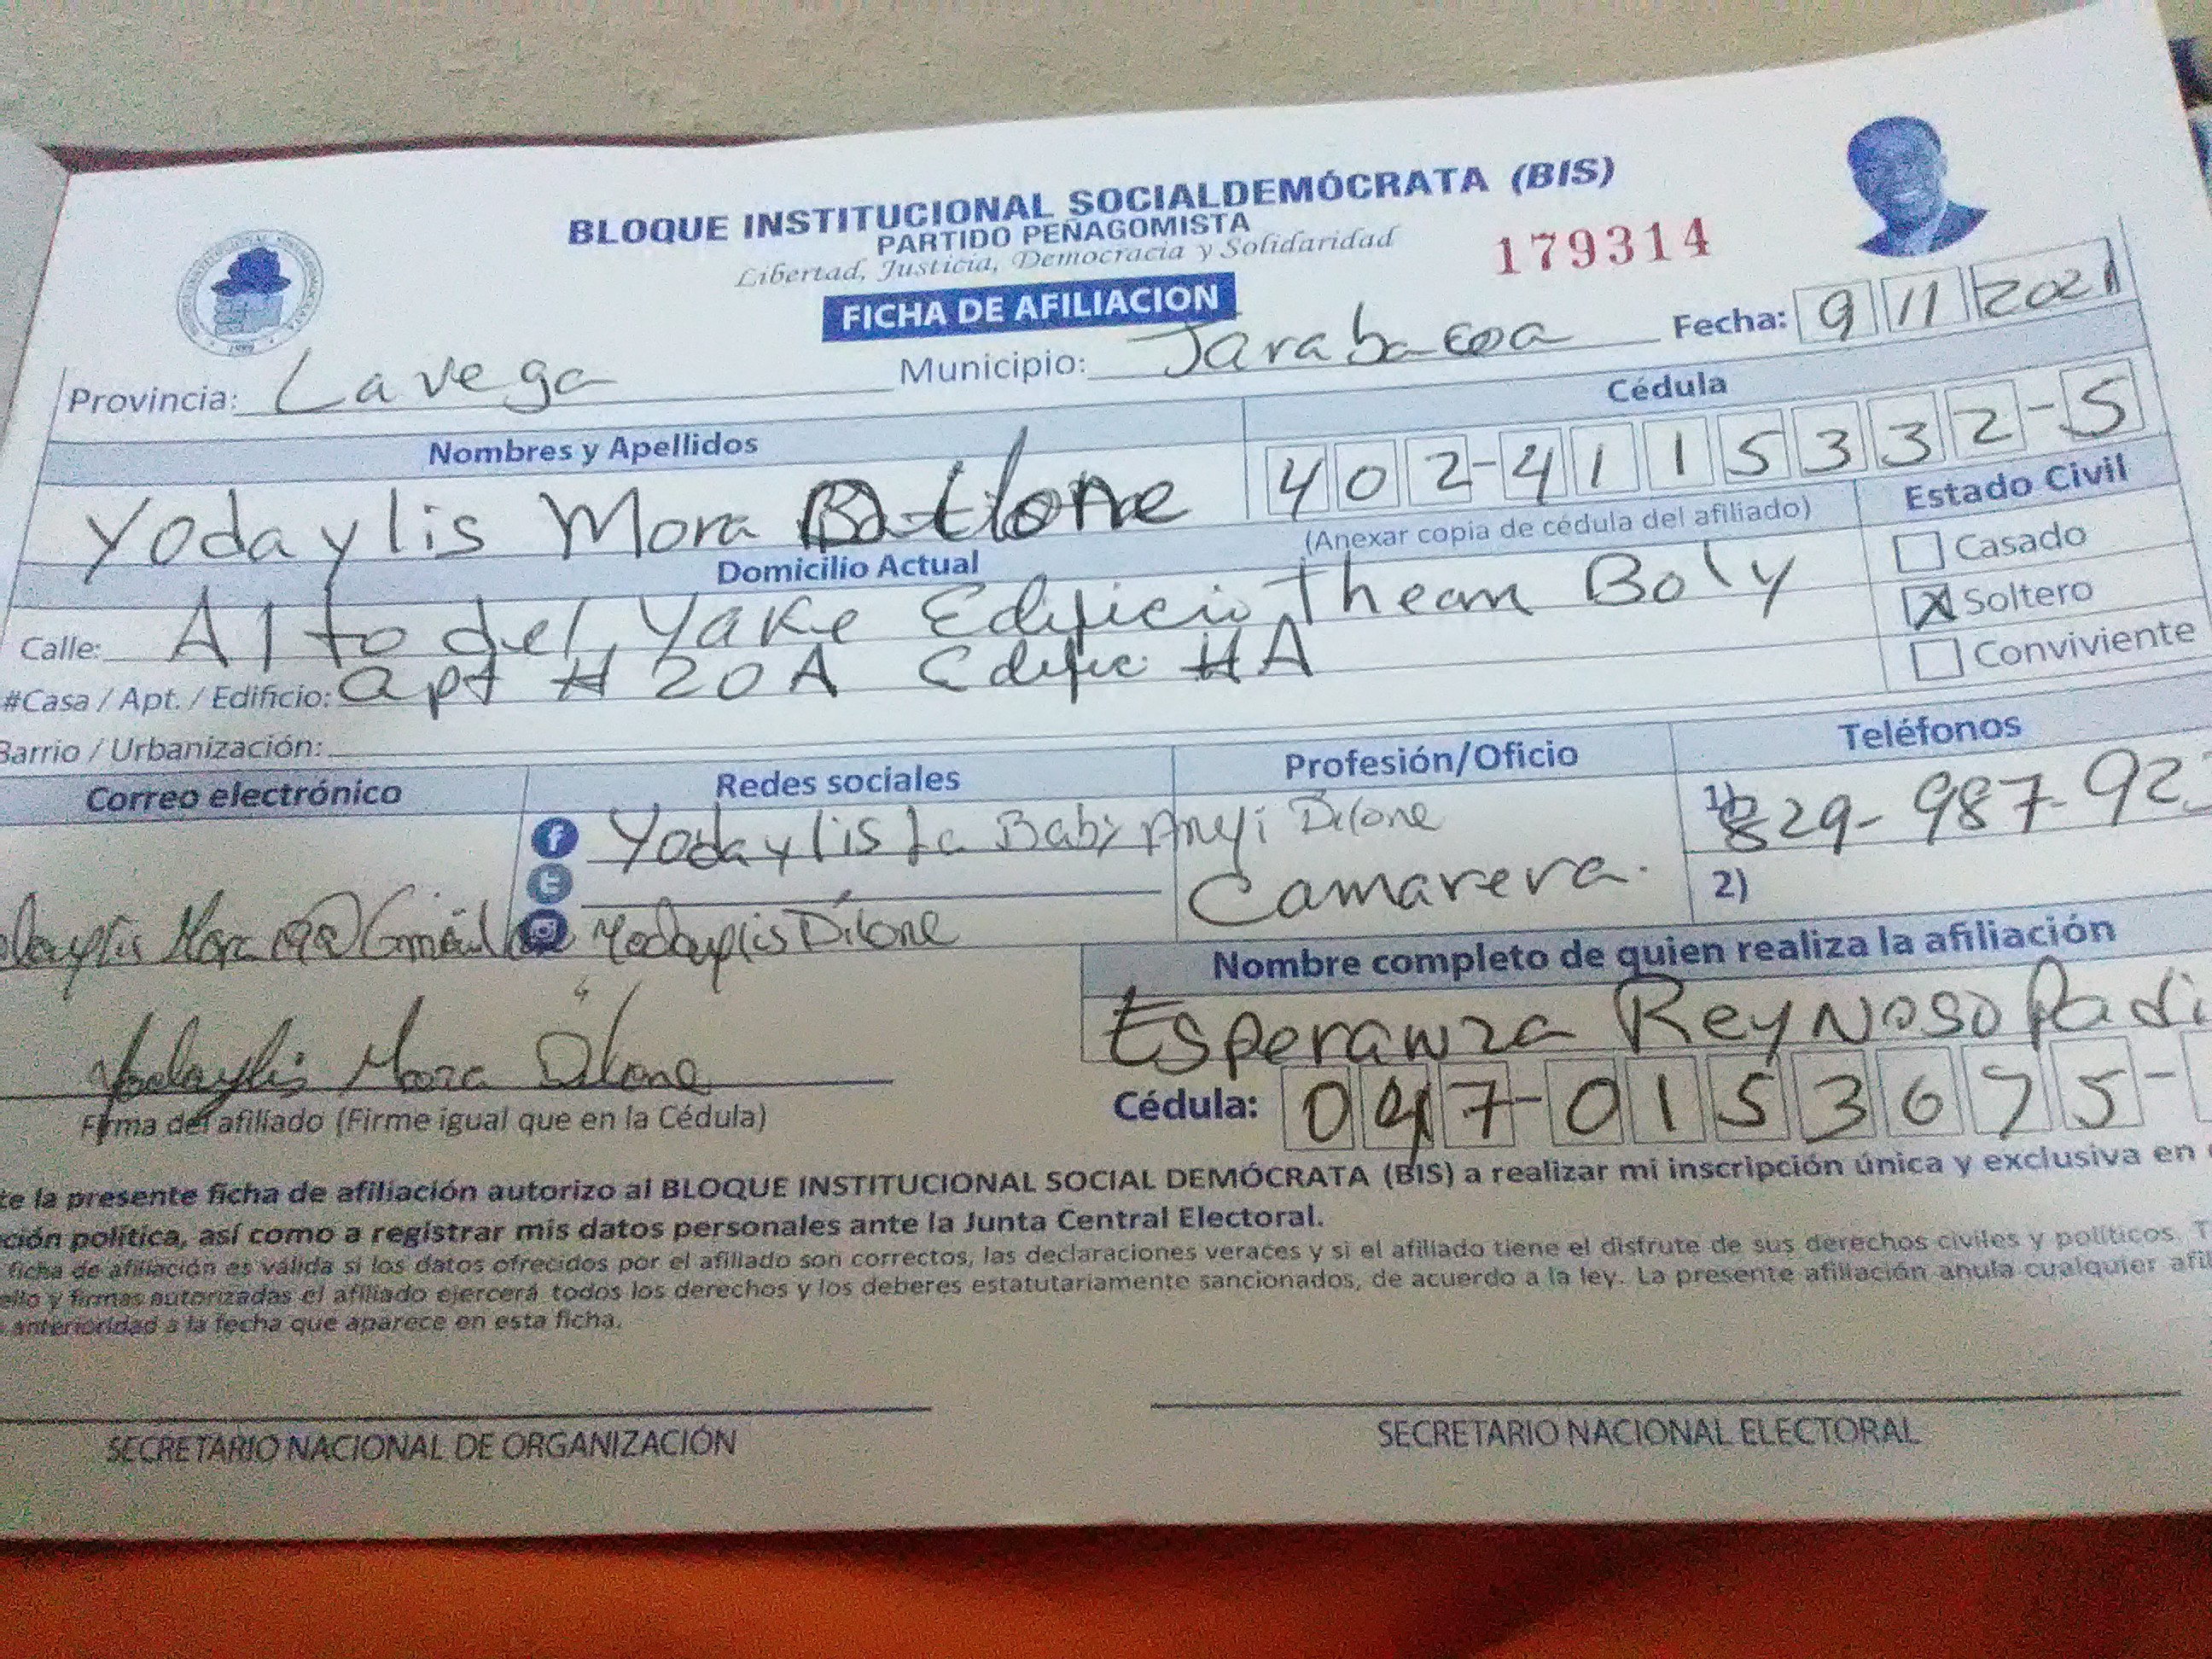 BLOQUE INSTITUCIONAL SOCIALDEMÓCRATA (BIS)
PARTIDO PEÑAGOMISTA
Libertad, Justicia, Democracia y Solidaridad
179314
FICHA DE AFILIACION
Fecha: 9 11 2021
Provincia: Lavega Municipio: Jarabacoa
Nombres y Apellidos Cédula
Yodaylis Mora 402-4115332-5
(Anexar copia de cédula del afiliado) Estado Civil
Domicilio Actual Casado
Calle: Alto del Yake Edificio Thean Boly X Soltero
#Casa / Apt. / Edificio: apt # 20A Edific #A Conviviente
Barrio / Urbanización:
Correo electrónico Redes sociales Profesión/Oficio Teléfonos
Yodaylis La Baby Anyi Dilone 1) 829-987-92
Camarera. 2)
Yodaylis Dilone
Nombre completo de quien realiza la afiliación
Esperanza Reynoso Padi
Yodaylis Mora Dilone
Firma del afiliado (Firme igual que en la Cédula) Cédula: 047-0153675-
te la presente ficha de afiliación autorizo al BLOQUE INSTITUCIONAL SOCIAL DEMÓCRATA (BIS) a realizar mi inscripción única y exclusiva en
ción política, así como a registrar mis datos personales ante la Junta Central Electoral.
ficha de afiliación es válida si los datos ofrecidos por el afiliado son correctos, las declaraciones veraces y si el afiliado tiene el disfrute de sus derechos civiles y políticos. T
ello y firmas autorizadas el afiliado ejercerá todos los derechos y los deberes estatutariamente sancionados, de acuerdo a la ley. La presente afiliación anula cualquier afil
anterioridad a la fecha que aparece en esta ficha.
SECRETARIO NACIONAL DE ORGANIZACIÓN SECRETARIO NACIONAL ELECTORAL